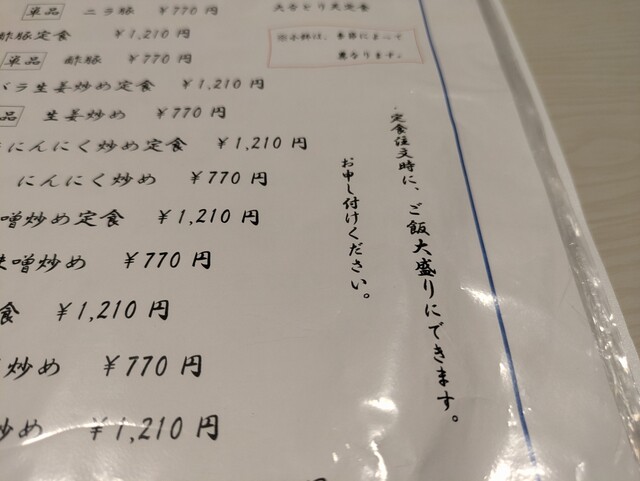 単品 ニラ豚 ￥770円
酢豚定食 ￥1,210円
単品 酢豚 ￥770円
バラ生姜炒め定食 ￥1,210円
品 生姜炒め ￥770円
にんにく炒め定食 ￥1,210円
にんにく炒め ￥770円
味噌炒め定食 ￥1,210円
味噌炒め ￥770円
食 ￥1,210円
炒め ￥770円
炒め ￥1,210円
円
季節によって
異なります。
定食注文時に、ご飯大盛りにできます。
お申し付けください。